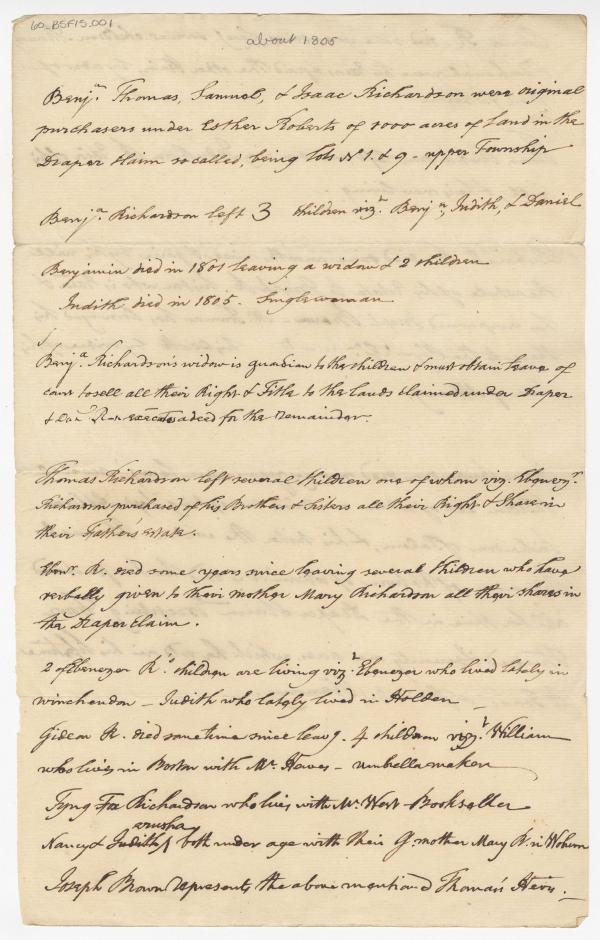 60_BSF15.001
about 1805
Benjᵃ. Thomas, Samuel, & Isaac Richardson were original
purchasers under Esther Roberts of 1000 acres of Land in the
Draper Claim so called, being lots Nº 1. & 9 - upper Township
Benjᵃ. Richardson left 3 children vizᵗ. Benjⁿ, Judith, & Daniel
Benjamin died in 1801 leaving a widow & 2 children
Judith died in 1805. Singlewoman
Benjᵃ. Richardson's widow is guardian to the children & must obtain leave of
court to sell all their Right & Title to the Lands claimed under Draper
& executes a deed for the remainder.
Thomas Richardson left several children one of whom viz. Ebenezʳ.
Richardson purchased of his Brothers & Sisters all their Right & Share in
their Father's estate.
Ebenʳ. R. died some years since leaving several Children who have
verbally given to their mother Mary Richardson all their shares in
the Draper Claim.
2 of Ebenezer R's children are living vizᵗ Ebenezer who lived lately in
Winchendon - Judith who lately lived in Holden
Gideon R. died sometime since leavg. 4 children vizᵗ. William
who lives in Boston with Mr. - umbrella maker
Tyng Richardson who lives with Mr. West - Bookseller
Nancy & Judith both under age with their G. mother Mary R. in Woburn
Joseph Brown represents the above mentioned Thomas's Heirs.